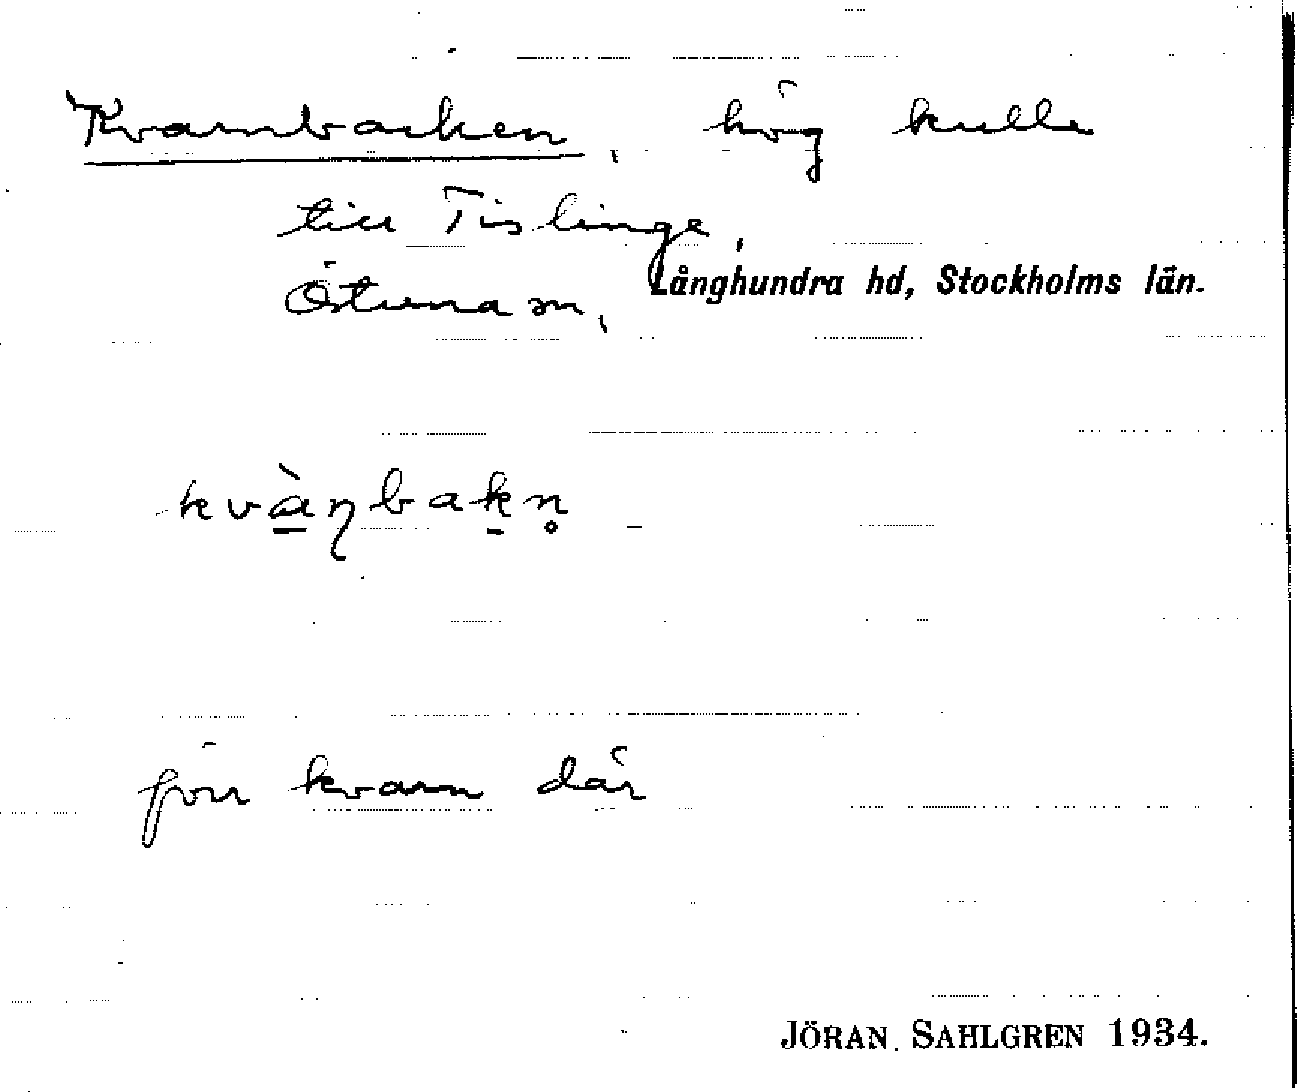 Kvarnbacken, hög kulle
till Tislinge,
Östuna sn, Långhundra hd, Stockholms län.
kvà̱ɳbak̠n̥
förr kvarn där
JÖRAN SAHLGREN 1934.